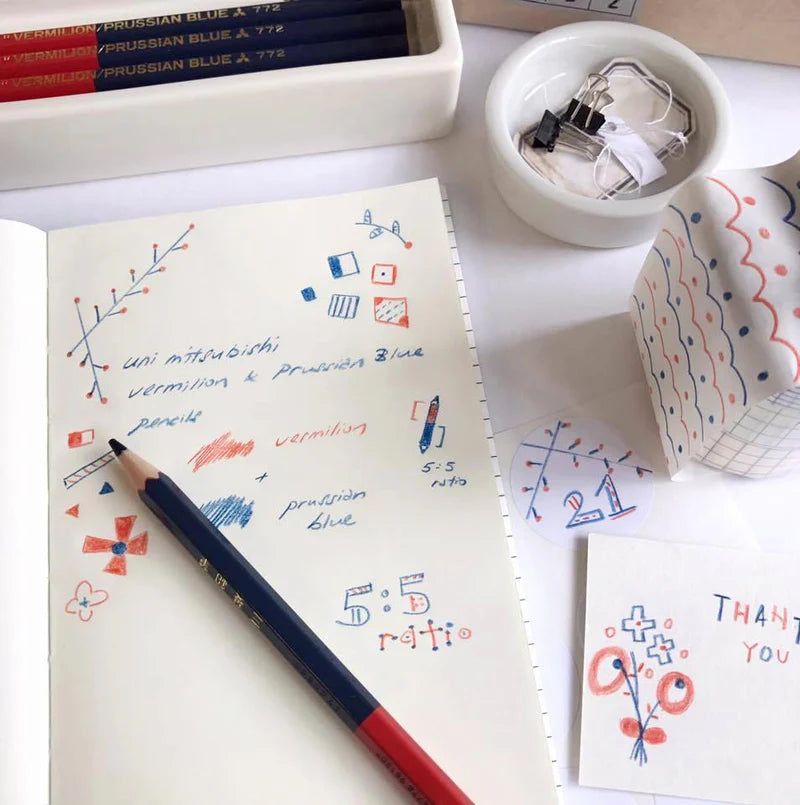 "VERMILION/PRUSSIAN BLUE 772
"VERMILION/PRUSSIAN BLUE 772
"VERMILION/PRUSSIAN BLUE 772
2
uni mitsubishi
vermilion & Prussian Blue
pencils
vermilion
+
prussian
blue
5:5
ratio
5:5
ratio
21
THANT
YOU